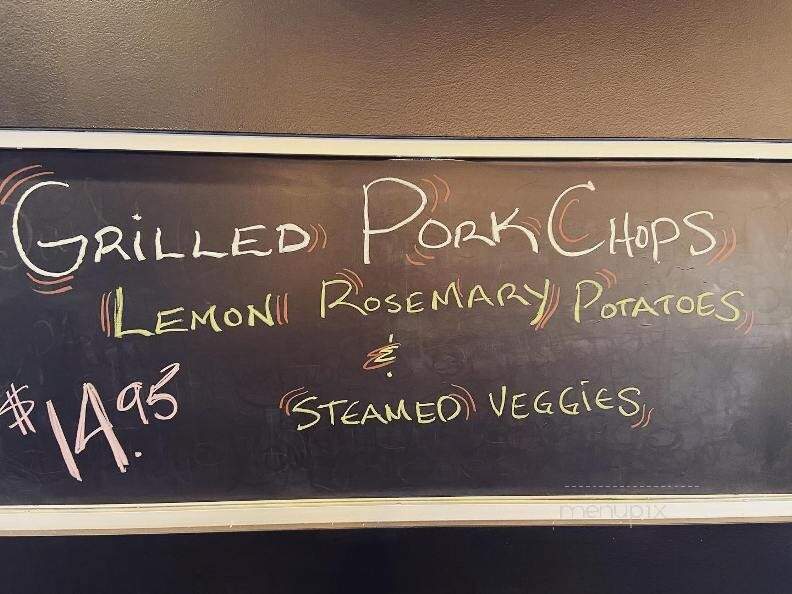 GRILLED PORK CHOPS
LEMON ROSEMARY POTATOES
&
STEAMED VEGGIES
$14.95
menupix